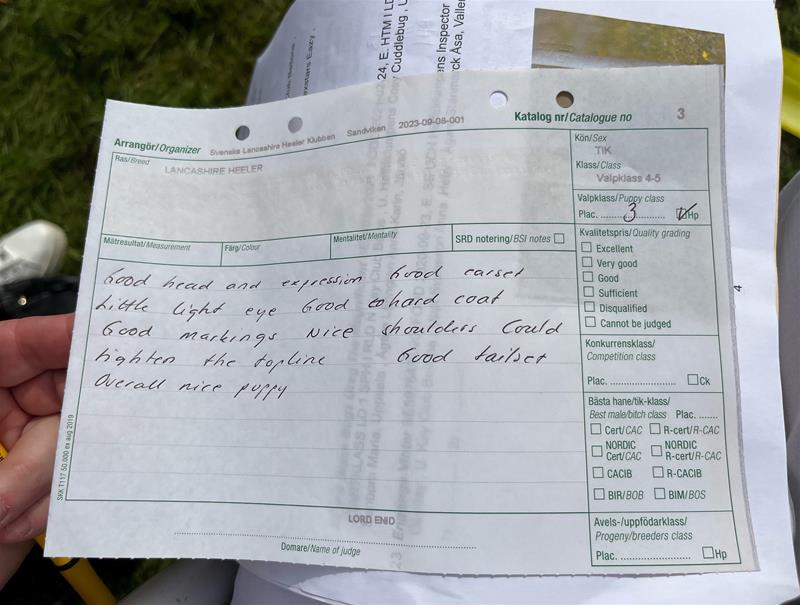 Arrangör/Organizer Svenska Lancashire Heeler Klubben Sandviken 2023-09-08-001 Katalog nr/Catalogue no 3
Ras/Breed LANCASHIRE HEELER
Kön/Sex
TIK
Klass/Class
Valpklass 4-5
Valpklass/Puppy class
Plac. 3 Hp
Mätresultat/Measurement Färg/Colour Mentalitet/Mentality SRD notering/BSI notes
Good head and expression Good earset
Little light eye Good hard coat
Good markings Nice shoulders Could
tighten the topline Good tailset
Overall nice puppy
Kvalitetspris/Quality grading
Excellent
Very good
Good
Sufficient
Disqualified
Cannot be judged
Konkurrensklass/
Competition class
Plac. .................... Ck
Bästa hane/tik-klass/
Best male/bitch class Plac. .......
Cert/CAC R-cert/R-CAC
NORDIC Cert/CAC NORDIC R-cert/R-CAC
CACIB R-CACIB
BIR/BOB BIM/BOS
Avels-/uppfödarklass/
Progeny/breeders class
Plac. ........................ Hp
LORD ENID
Domare/Name of judge
SKK T117 50.000 ex aug 2019
4